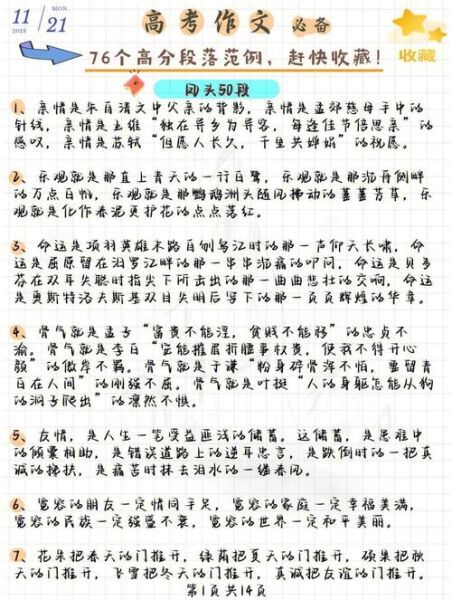 11
MON.
2022
21
高考作文 必备
76个高分段落范例，赶快收藏！
收藏
开头50段
1、亲情是朱自清文中父亲的背影，亲情是孟郊慈母手中的
针线，亲情是王维“独在异乡为异客，每逢佳节倍思亲”的
感叹，亲情是苏轼“但愿人长久，千里共婵娟”的祝愿。
2、乐观就是那直上青天的一行白鹭，乐观就是那沉舟侧畔
的万点白帆，乐观就是那鹦鹉洲头随风拂动的萋萋芳草，乐
观就是化作春泥更护花的点点落红。
3、命运是项羽英雄末路自刎乌江时的那一声仰天长啸，命
运是屈原留在汨罗江畔的那一串串沉痛的叩问，命运是贝多
芬在双耳失聪时指尖下所击出的那一曲曲悲壮的交响，命运
是奥斯特洛夫斯基双目失明后写下的那一页页辉煌的华章。
4、骨气就是孟子“富贵不能淫，贫贱不能移”的忠贞不
渝。骨气就是李白“安能摧眉折腰事权贵，使我不得开心
颜”的傲岸不羁。骨气就是于谦“粉身碎骨浑不怕，要留青
白在人间”的刚强不屈。骨气就是叶挺“人的身躯怎能从狗
的洞子爬出”的凛然不惧。
5、友情，是人生一笔受益匪浅的储蓄。这储蓄，是患难中
的倾囊相助，是错误道路上的逆耳忠言，是跌倒时的一把真
诚的搀扶，是痛苦时抹去泪水的一缕春风。
6、宽容的朋友一定情同手足，宽容的家庭一定幸福美满，
宽容的民族一定强盛不衰，宽容的世界一定和平美丽。
7、花朵把春天的门推开，绿荫把夏天的门推开，硕果把秋
天的门推开，飞雪把冬天的门推开，真诚把友谊的门推开。
第1页 共14页